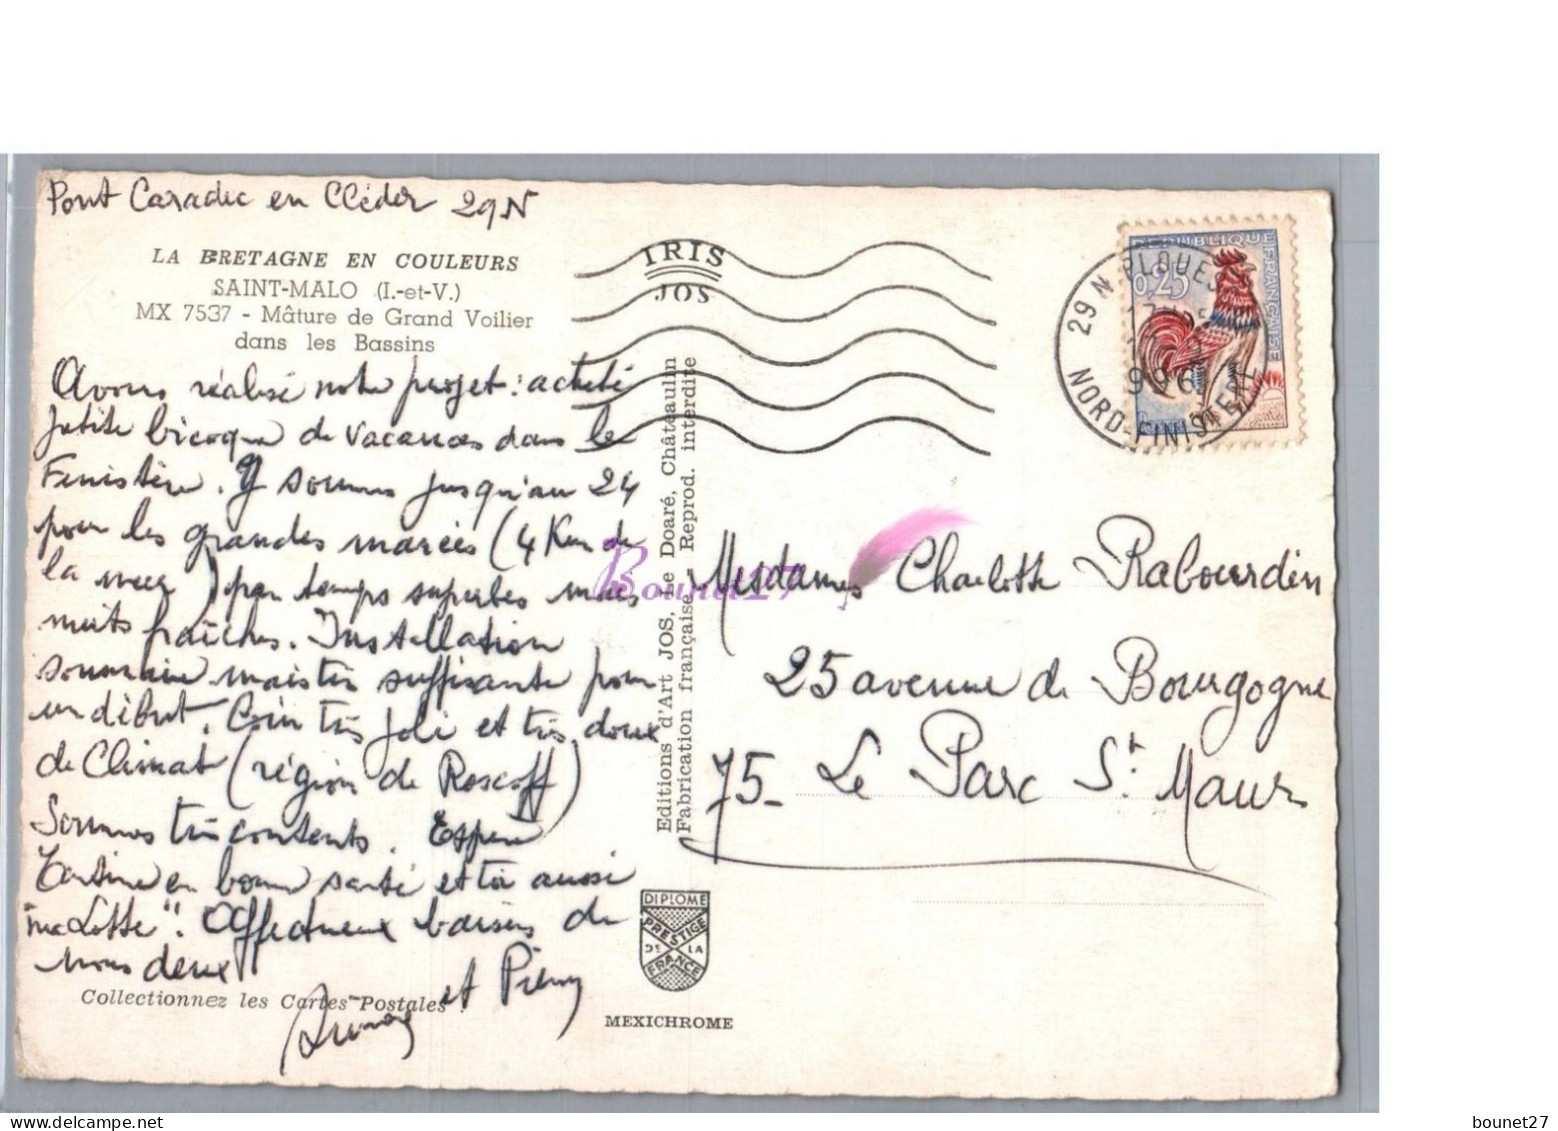 Pont Caradec en Cléder 29N
LA BRETAGNE EN COULEURS
SAINT-MALO (I.-et-V.)
MX 7537 - Mâture de Grand Voilier
dans les Bassins
Avons réalisé notre projet : acheté
petite bicoque de vacances dans le
Finistère. Y sommes jusqu'au 24
pour les grandes marées (4 Km de
la mer) par temps superbes mais
nuits fraîches. Installation
sommaire mais très suffisante pour
un début. Coin très joli et très doux
de climat (région de Roscoff)
Sommes très contents. Espère
en bonne santé et toi aussi
"ma Lotte". Affectueux baisers de
nous deux
et Pierre
Collectionnez les Cartes Postales !
IRIS
JOS
Editions d'Art JOS, Le Doaré, Châteaulin
Fabrication française - Reprod. interdite
DIPLOME
PRESTIGE
DE LA
FRANCE
MEXICHROME
REPUBLIQUE FRANÇAISE
0,25
29 N PLOUES
NORD-FINISTERE
Mesdames Charlotte Rabourdin
25 avenue de Bourgogne
75- Le Parc St Maur
Bounet27
bounet27